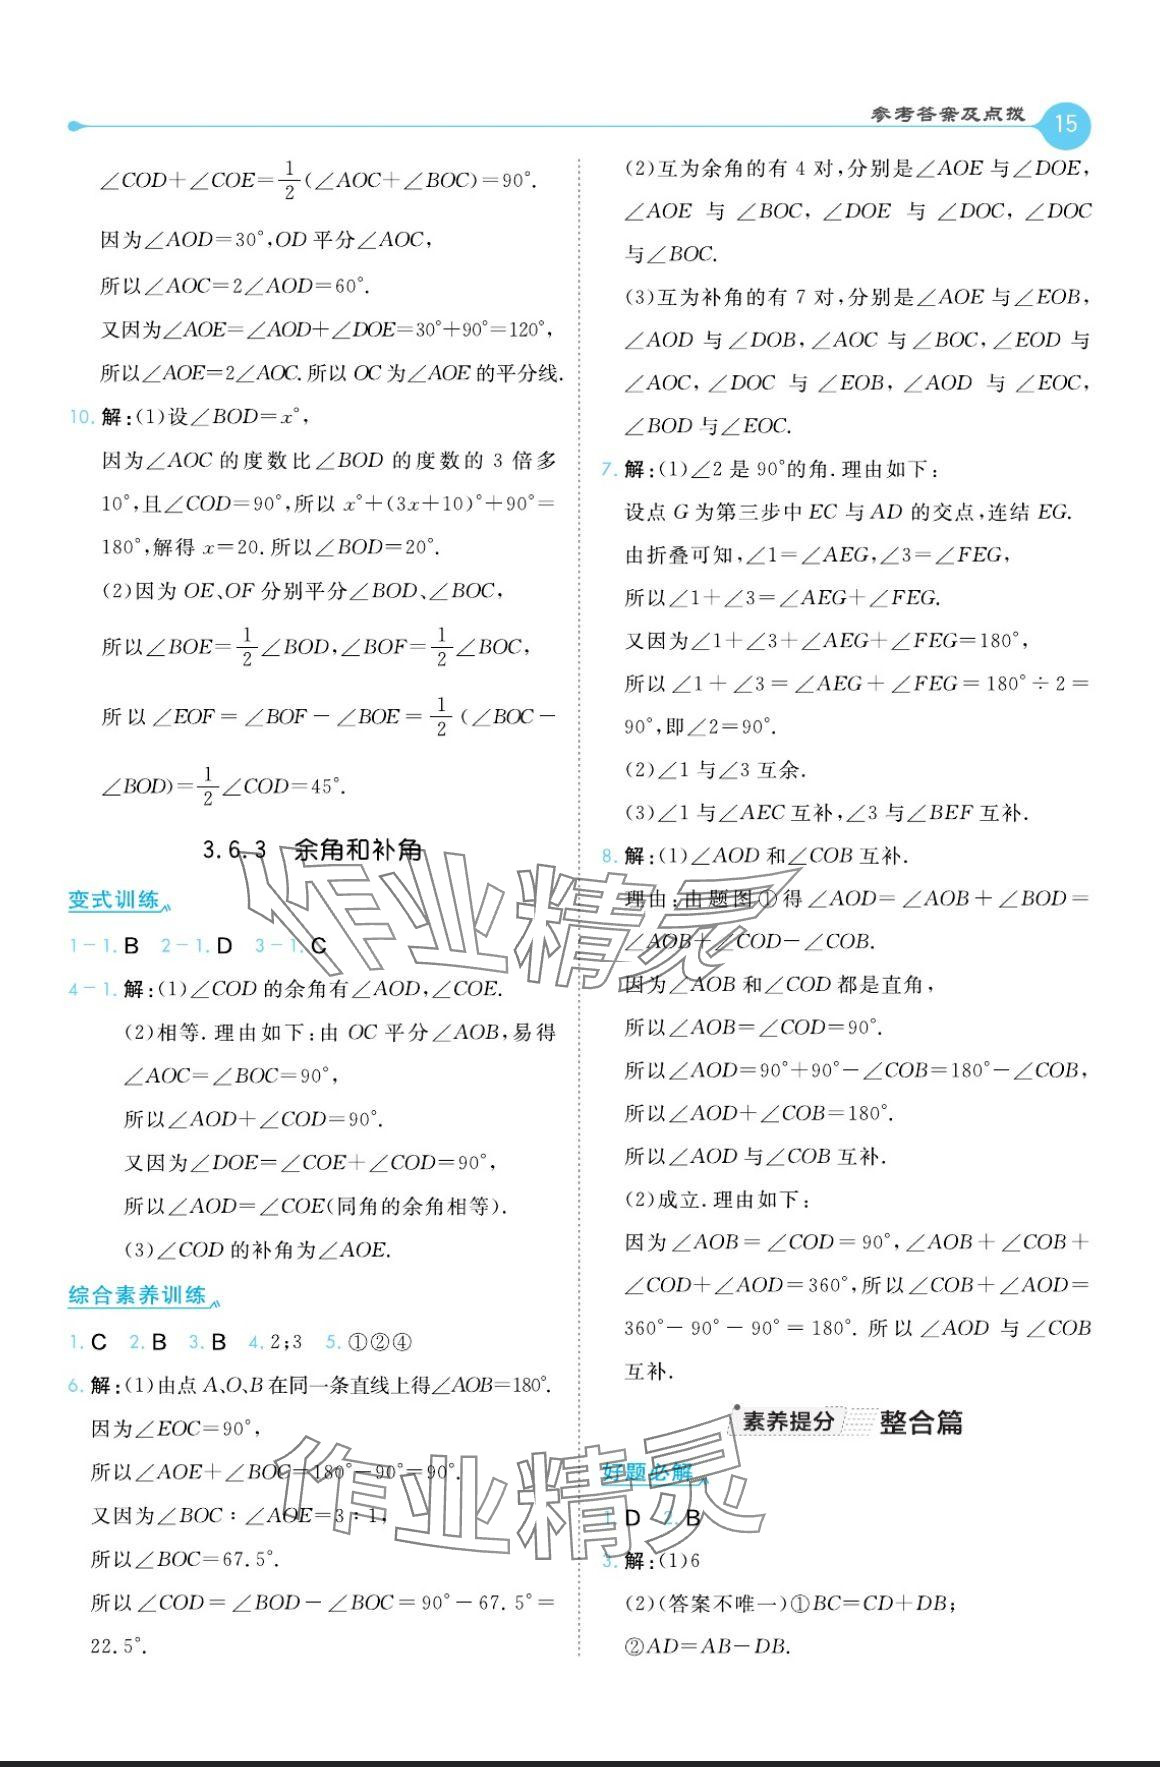 参考答案及点拨 15
∠COD+∠COE=1/2(∠AOC+∠BOC)=90°.
因为∠AOD=30°,OD平分∠AOC,
所以∠AOC=2∠AOD=60°.
又因为∠AOE=∠AOD+∠DOE=30°+90°=120°,
所以∠AOE=2∠AOC.所以OC为∠AOE的平分线.
10. 解:(1)设∠BOD=x°,
因为∠AOC的度数比∠BOD的度数的3倍多
10°,且∠COD=90°,所以x°+(3x+10)°+90°=
180°,解得x=20.所以∠BOD=20°.
(2)因为OE、OF分别平分∠BOD、∠BOC,
所以∠BOE=1/2∠BOD,∠BOF=1/2∠BOC,
所以∠EOF=∠BOF-∠BOE=1/2(∠BOC-
∠BOD)=1/2∠COD=45°.
3.6.3 余角和补角
变式训练
1-1. B 2-1. D 3-1. C
4-1. 解:(1)∠COD的余角有∠AOD,∠COE.
(2)相等.理由如下:由OC平分∠AOB,易得
∠AOC=∠BOC=90°,
所以∠AOD+∠COD=90°.
又因为∠DOE=∠COE+∠COD=90°,
所以∠AOD=∠COE(同角的余角相等).
(3)∠COD的补角为∠AOE.
综合素养训练
1. C 2. B 3. B 4. 2;3 5. ①②④
6. 解:(1)由点A、O、B在同一条直线上得∠AOB=180°.
因为∠EOC=90°,
所以∠AOE+∠BOC=180°-90°=90°.
又因为∠BOC:∠AOE=3:1,
所以∠BOC=67.5°.
所以∠COD=∠BOD-∠BOC=90°-67.5°=
22.5°.
(2)互为余角的有4对,分别是∠AOE与∠DOE,
∠AOE与∠BOC,∠DOE与∠DOC,∠DOC
与∠BOC.
(3)互为补角的有7对,分别是∠AOE与∠EOB,
∠AOD与∠DOB,∠AOC与∠BOC,∠EOD与
∠AOC,∠DOC与∠EOB,∠AOD与∠EOC,
∠BOD与∠EOC.
7. 解:(1)∠2是90°的角.理由如下:
设点G为第三步中EC与AD的交点,连结EG.
由折叠可知,∠1=∠AEG,∠3=∠FEG,
所以∠1+∠3=∠AEG+∠FEG.
又因为∠1+∠3+∠AEG+∠FEG=180°,
所以∠1+∠3=∠AEG+∠FEG=180°÷2=
90°,即∠2=90°.
(2)∠1与∠3互余.
(3)∠1与∠AEC互补,∠3与∠BEF互补.
8. 解:(1)∠AOD和∠COB互补.
理由:由题图①得∠AOD=∠AOB+∠BOD=
∠AOB+∠COD-∠COB.
因为∠AOB和∠COD都是直角,
所以∠AOB=∠COD=90°.
所以∠AOD=90°+90°-∠COB=180°-∠COB,
所以∠AOD+∠COB=180°.
所以∠AOD与∠COB互补.
(2)成立.理由如下:
因为∠AOB=∠COD=90°,∠AOB+∠COB+
∠COD+∠AOD=360°,所以∠COB+∠AOD=
360°-90°-90°=180°.所以∠AOD与∠COB
互补.
素养提分 整合篇
好题必解
1. D 2. B
3. 解:(1)6
(2)(答案不唯一)①BC=CD+DB;
②AD=AB-DB.
作业精灵
作业精灵